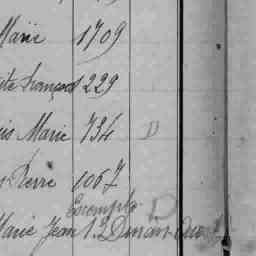 Marie 1709
ite François 229
is Marie 734 D
Pierre 1067
Exempté D
Marie Jean 12 Dinan